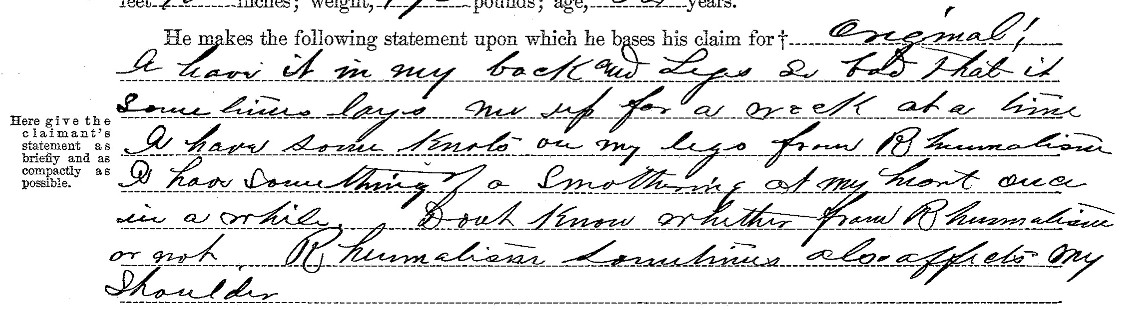 feet, inches; weight, pounds; age, years.
He makes the following statement upon which he bases his claim for† Original!
I have it in my back and Legs so bad that it
sometimes lays me up for a week at a time
I have some Knots on my legs from Rheumatism
I have something of a Smothering at my heart once
in a while. Dont Know whether from Rheumatism
or not. Rheumatism sometimes also affects my
Shoulder
Here give the
claimant's
statement as
briefly and as
compactly as
possible.